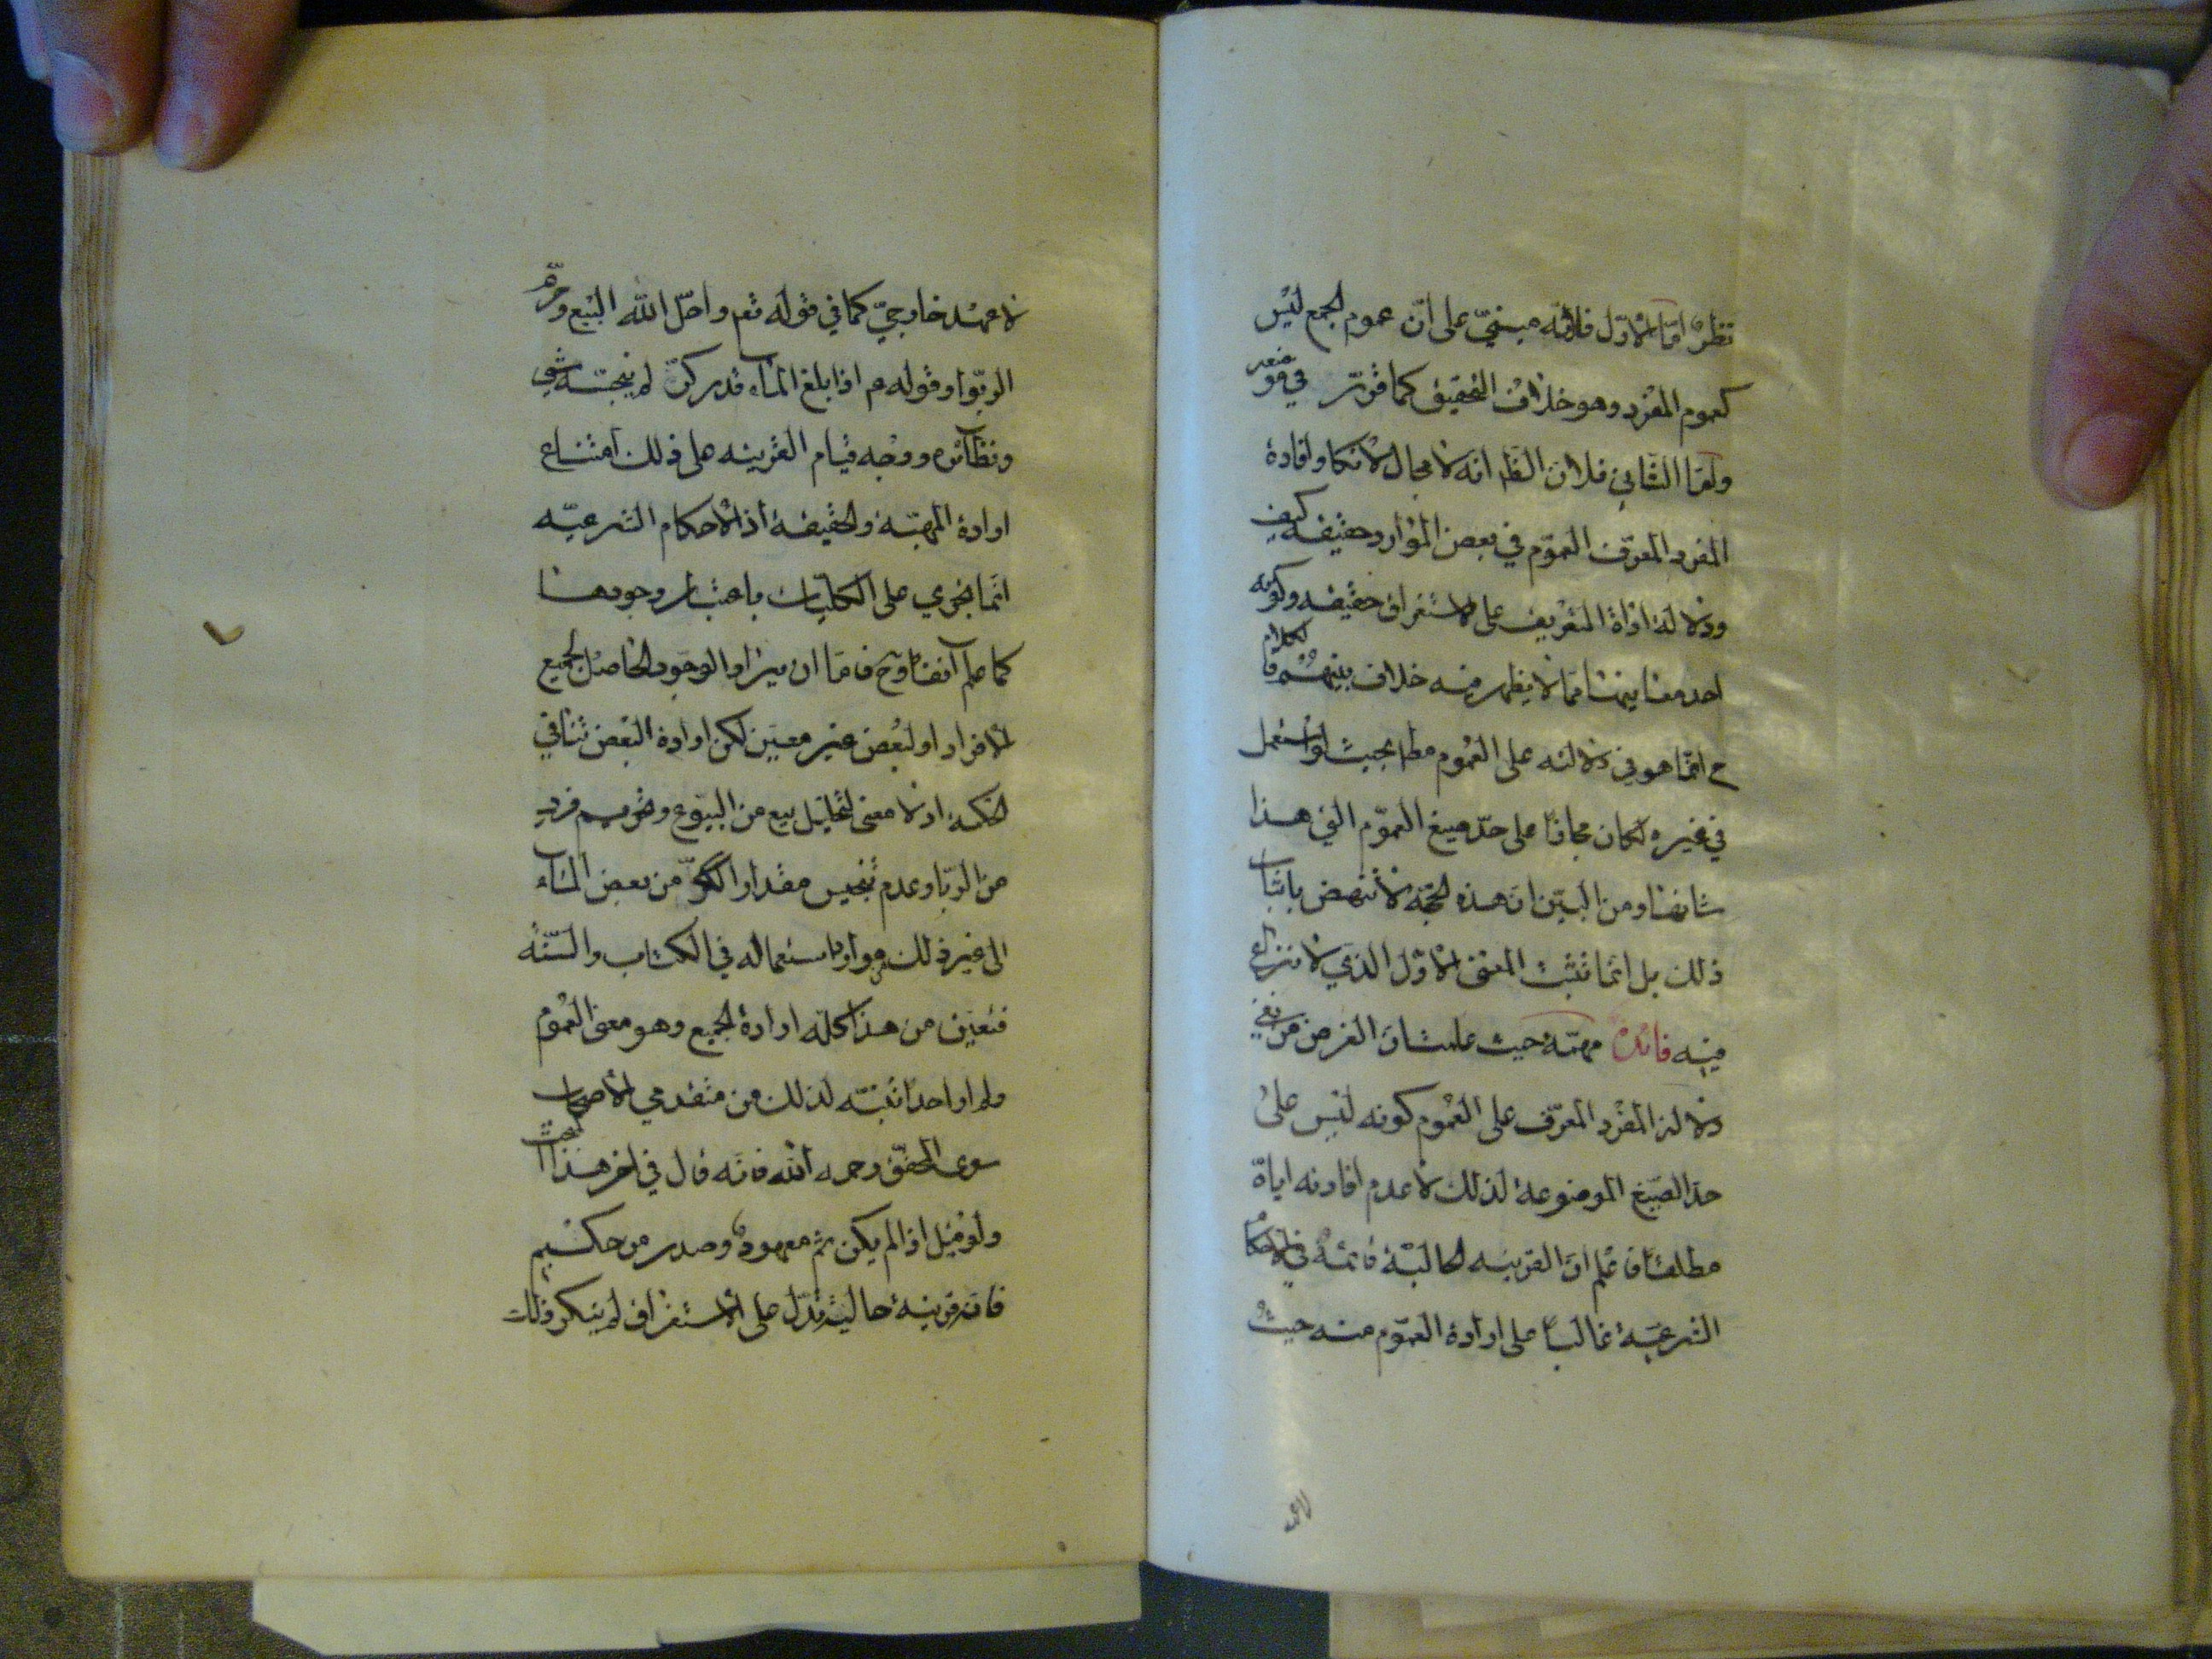 نظر امّا الأوّل فلأنّه مبنيّ على انّ عموم الجمع ليس
كعموم المفرد وهو خلاف التحقيق كما قرّر في موضعه
وامّا الثاني فلأن الظ انه لا مجال لانكار افادة
المفرد المعرّف العموم في بعض الموارد حقيقة كيف
ودلالة اداة التعريف على الاستغراق حقيقة وكونه
احد معانيها ممّا لا يظهر فيه خلاف بينهم فالكلام
ح انّما هو في دلالته على العموم مط بحيث لو استعمل
في غيره لكان مجازًا على حدّ صيغ العموم التي هذا
شانها ومن البيّن انّ هذه الحجّة لا تنهض باثبات
ذلك بل انّما تثبت المعنى الأوّل الذي لا نزاع
فيه فائدة مهمّة حيث علمت انّ الغرض من نفي
دلالة المفرد المعرّف على العموم كونه ليس على
حدّ الصّيغ الموضوعة لذلك لا عدم افادته ايّاه
مطلقًا فاعلم انّ القرينه الحاليّة قائمة في الاحكام
الشرعيّة غالبًا على ارادة العموم منه حيث
لا عهد
لا عهد خارجيّ كما في قوله تعم واحلّ الله البيع وحرّم
الربوا وقوله م اذا بلغ الماء قدر كرّ لم ينجّسه شي
ونظائره ووجه قيام القرينه على ذلك امتناع
ارادة المهيّة والحقيقة اذ الأحكام الشرعيّه
انّما تجري على الكليّات باعتبار وجودها
كما علم آنفًا وح فامّا ان يراد الوجود الحاصل بجميع
الافراد او ببعض غير معيّن لكن ارادة البعض تنافي
الحكمة اذ لا معنى لتحليل بيع من البيوع وتحريم فرد
من الربا وعدم تنجيس مقدار الكرّ من بعض الماء
الى غير ذلك من موارد استعماله في الكتاب والسّنّة
فتعيّن من هذا كلّه ارادة الجميع وهو معنى العموم
ولم ار احدًا تنبّه لذلك من متقدمي الاصحاب
سوى المحقّق رحمه الله فانّه قال في اخر هذا البحث
ولو قيل اذا لم يكن ثمّ معهود وصدر من حكيم
فانّ قرينة حاليّة تدلّ على الاستغراق لم ينكر ذلك